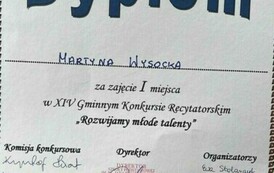 Dyplom
MARTYNA WYSOCKA
za zajęcie I miejsca
w XIV Gminnym Konkursie Recytatorskim
„Rozwijamy młode talenty”
Komisja konkursowa Dyrektor Organizatorzy